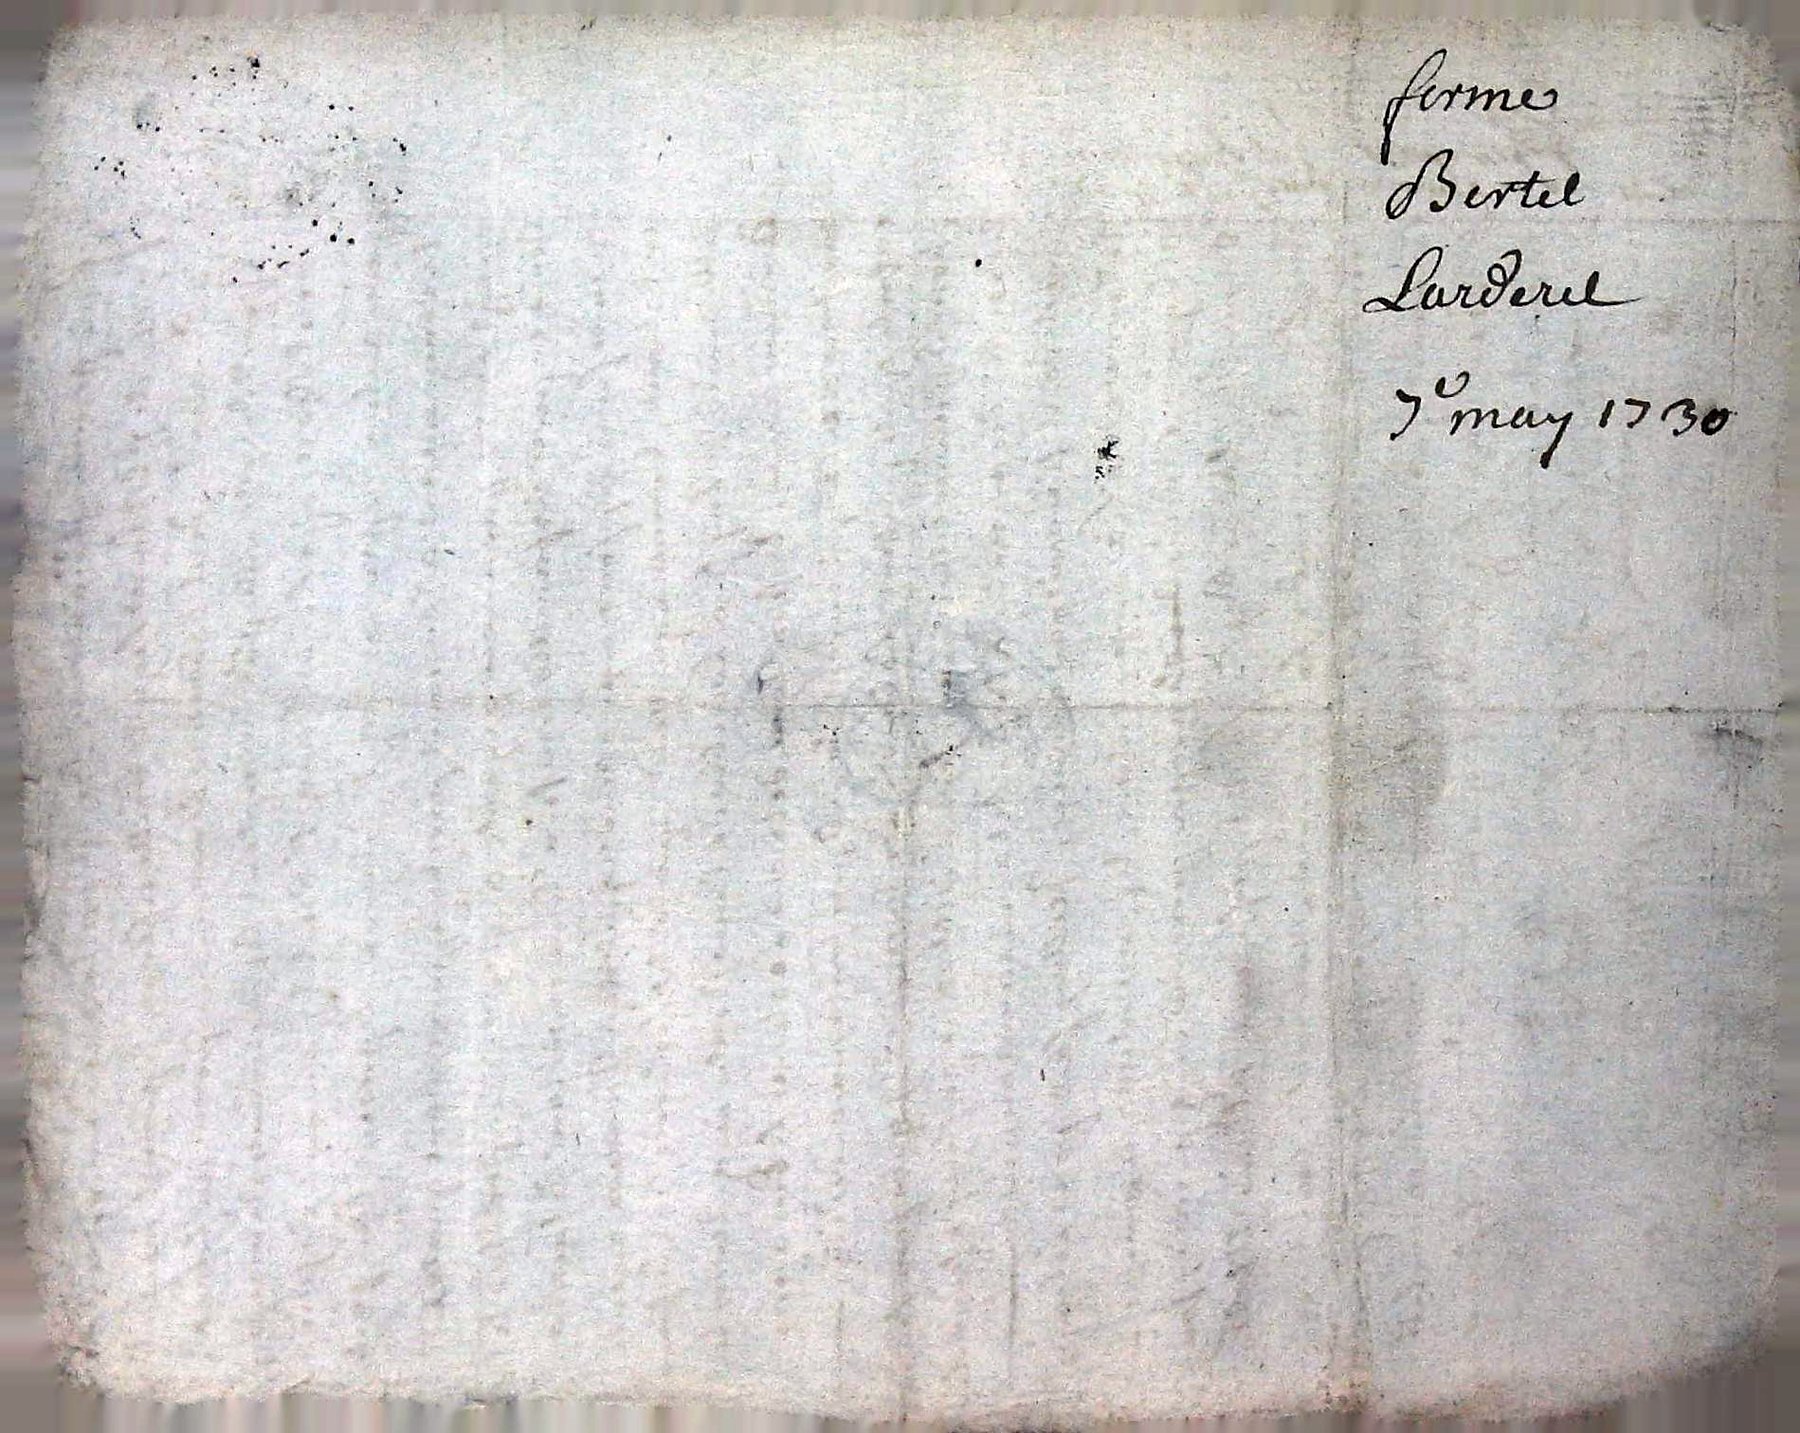 ferme
Bertel
Larderel
7e may 1730